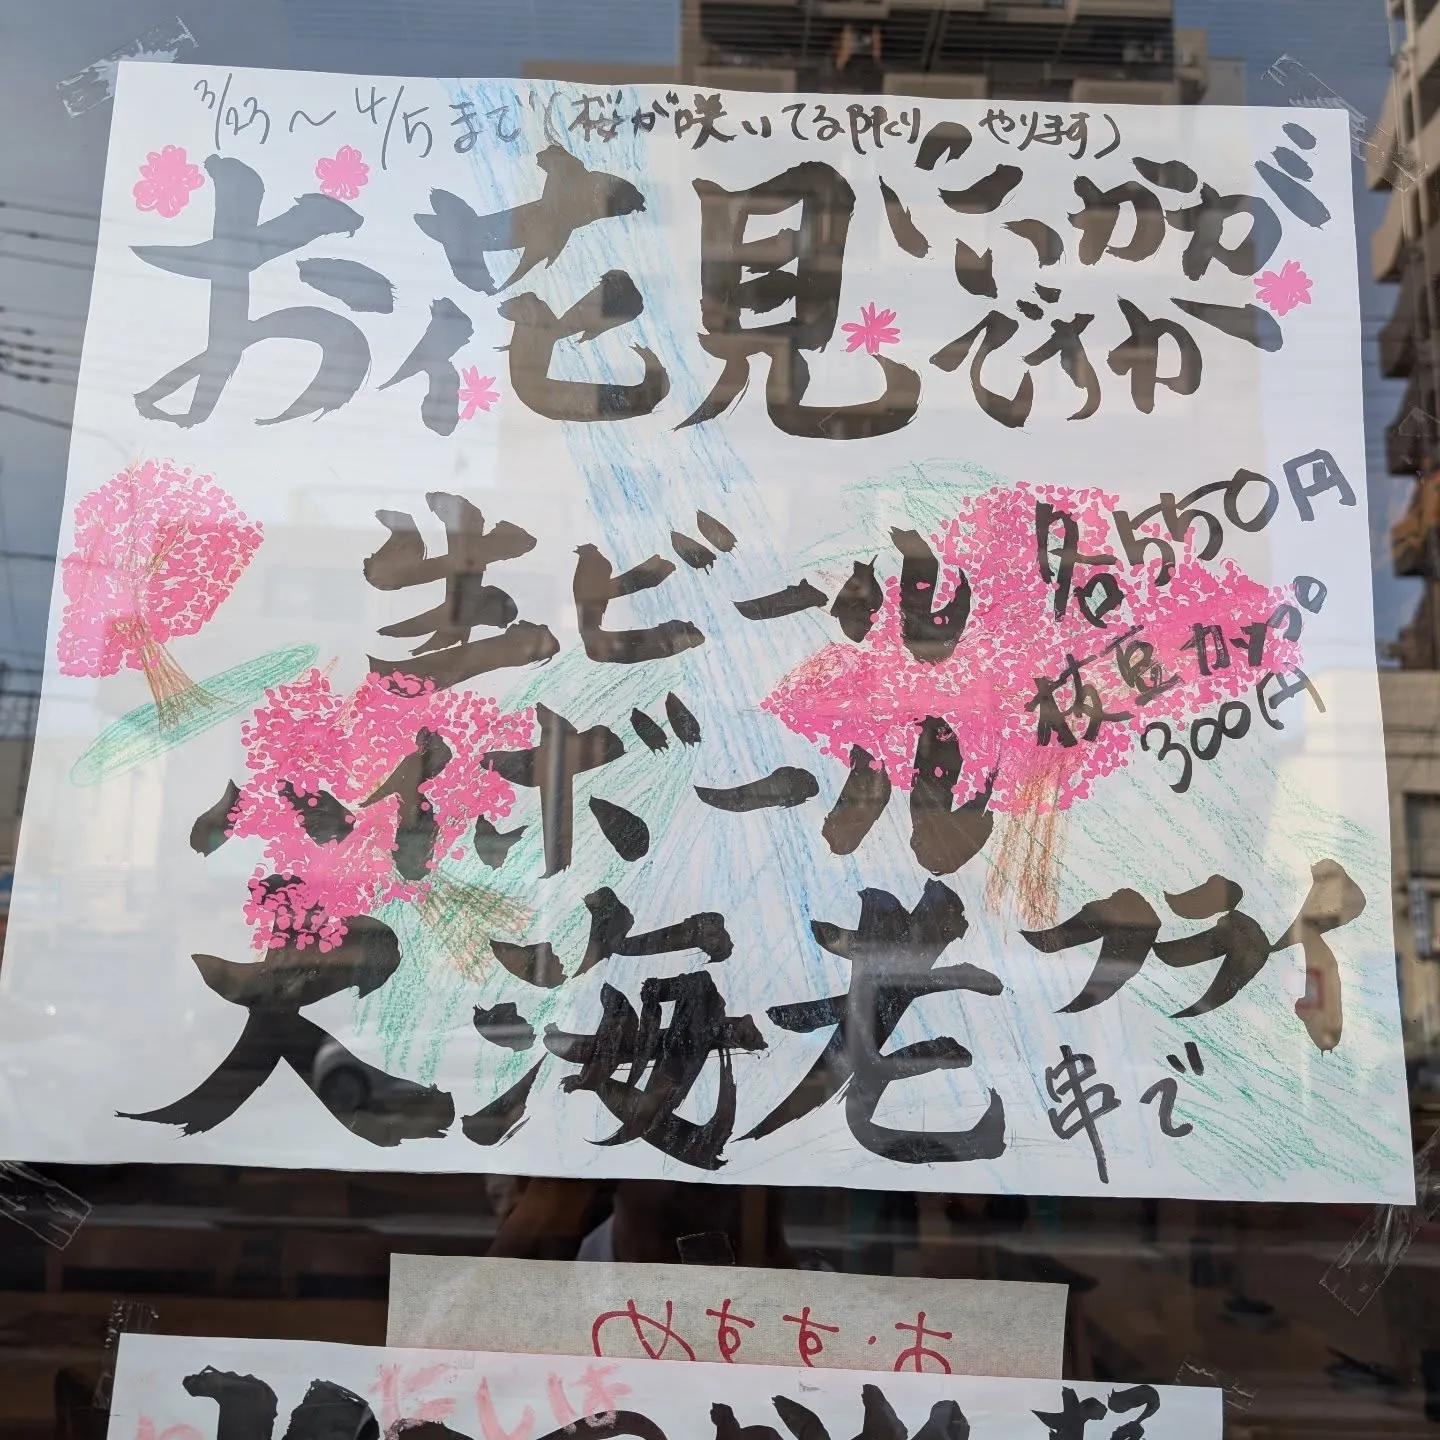 3/23〜4/5まで(桜が咲いてる限りやります)
お花見にいかが
ですか
生ビール
各550円
ハイボール
枝豆カップ
300円
大海老フライ
串で
おすすめ